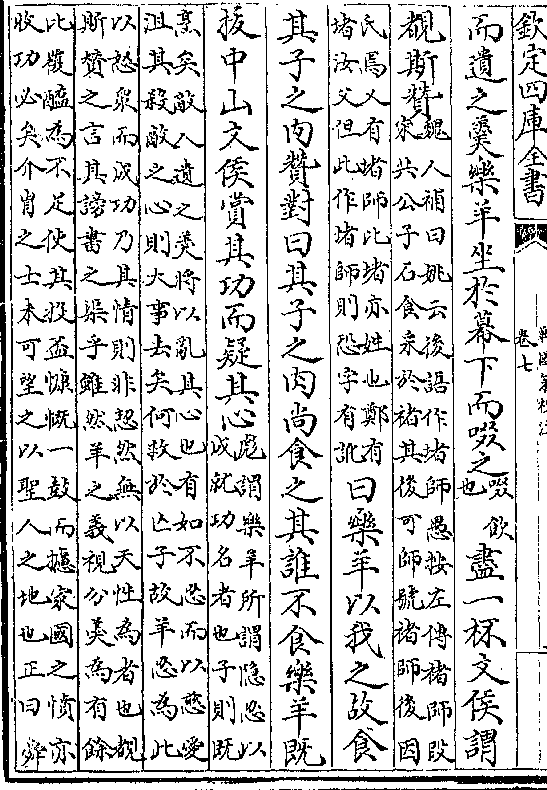 欽定四庫全書
戰國策校注
卷七
而遺之羮樂羊坐於幕下而啜之
啜飲
也
盡一杯文侯謂
覩斯贊
魏人補曰姚云後語作堵師愚按左傳褚師段
宋共公子石食采於褚其後可師號褚師後因
氏焉又有堵師此堵亦姓也鄭有
堵汝父但此作堵師則恐字有訛
曰樂羊以我之故食
其子之肉贊對曰其子之肉尚食之其誰不食樂羊既
拔中山文侯賞其功而疑其心
彪謂樂羊所謂隠忍以
成就功名者也子則既
烹矣敵人遺之羮將以亂其心也有如不忍而以慈愛
沮其殺敵之心則大事去矣何救於亡子故羊忍為此
以怒衆而成功乃其情則非恝然無以天性為者也覩
斯贊之言其謗書之渠乎雖然羊之義視分羮為有餘
比覆醢為不足使其投盃慷慨一鼓而攄家國之憤亦
收功必矣介胄之士未可望之以聖人之地也正曰彛